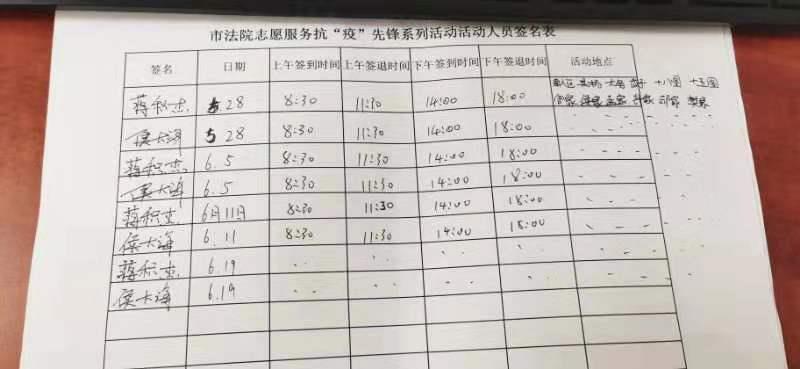 市法院志愿服务抗“疫”先锋系列活动活动人员签名表
签名 日期 上午签到时间 上午签退时间 下午签到时间 下午签退时间 活动地点
蒋积杰 5 28 8:30 11:30 14:00 18:00 十八团 十五团
侯大海 5 28 8:30 11:30 14:00 18:00
蒋积杰 6.5 8:30 11:30 14:00 18:00
侯大海 6.5 8:30 11:30 14:00 18:00
蒋积杰 6月11日 8:30 11:30 14:00 18:00
侯大海 6.11 8:30 11:30 14:00 18:00
蒋积杰 6.19
侯大海 6.19